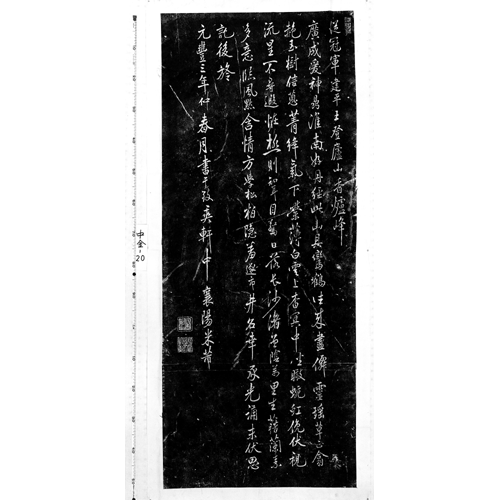 從冠軍建平王登廬山香爐峰
廣成愛神鼎淮南好丹經此山具鸞鶴往來盡僊靈瑤草正翕
赩玉樹信蔥菁絳氣下縈薄白雲上杳冥中坐瞰蜿虹俛伏視
流星不尋遐怪極則知耳目驚日落長沙渚曾陰萬里生藉蘭素
多意臨風默含情方學松柏隱羞逐市井名幸承光誦末伏思
託後旍
元豐三年仲春月書于致爽軒中襄陽米芾
中金:20